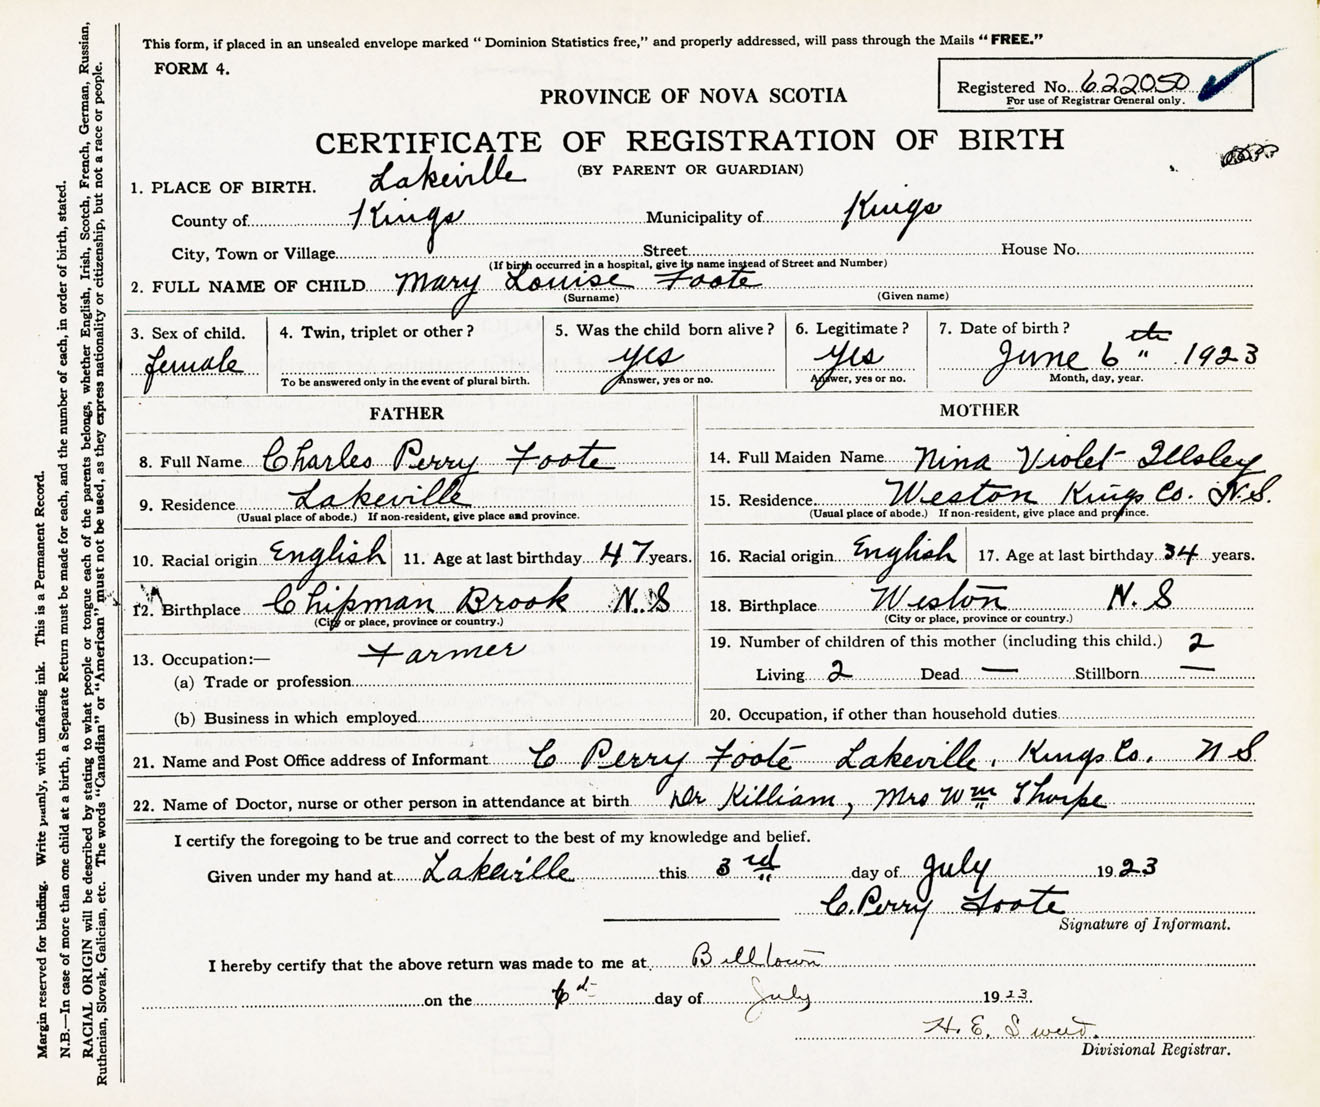 This form, if placed in an unsealed envelope marked “ Dominion Statistics free,” and properly addressed, will pass through the Mails “ FREE.”
FORM 4.
Registered No. 622050
For use of Registrar General only.
PROVINCE OF NOVA SCOTIA
CERTIFICATE OF REGISTRATION OF BIRTH
(BY PARENT OR GUARDIAN)
1. PLACE OF BIRTH. Lakeville
County of Kings Municipality of Kings
City, Town or Village Street House No.
(If birth occurred in a hospital, give its name instead of Street and Number)
2. FULL NAME OF CHILD Mary Louise Foote
(Surname) (Given name)
3. Sex of child. 4. Twin, triplet or other ? 5. Was the child born alive ? 6. Legitimate ? 7. Date of birth ?
female yes yes June 6th 1923
To be answered only in the event of plural birth. Answer, yes or no. Answer, yes or no. Month, day, year.
FATHER
8. Full Name Charles Perry Foote
9. Residence Lakeville
(Usual place of abode.) If non-resident, give place and province.
10. Racial origin English 11. Age at last birthday 47 years.
12. Birthplace Chipman Brook N.S
(City or place, province or country.)
13. Occupation:— Farmer
(a) Trade or profession
(b) Business in which employed
MOTHER
14. Full Maiden Name Nina Violet Illsley
15. Residence Weston Kings Co. N.S.
(Usual place of abode.) If non-resident, give place and province.
16. Racial origin English 17. Age at last birthday 34 years.
18. Birthplace Weston N.S
(City or place, province or country.)
19. Number of children of this mother (including this child.) 2
Living 2 Dead — Stillborn —
20. Occupation, if other than household duties
21. Name and Post Office address of Informant C Perry Foote Lakeville, Kings Co. N S
22. Name of Doctor, nurse or other person in attendance at birth Dr Killiam, Mrs Wm Thorpe
I certify the foregoing to be true and correct to the best of my knowledge and belief.
Given under my hand at Lakeville this 3rd day of July 1923
C. Perry Foote
Signature of Informant.
I hereby certify that the above return was made to me at Billtown
on the day of July 1923.
H. E. Sweet.
Divisional Registrar.
Margin reserved for binding. Write plainly, with unfading ink. This is a Permanent Record.
N.B.—In case of more than one child at a birth, a Separate Return must be made for each, and the number of each, in order of birth, stated.
RACIAL ORIGIN will be described by stating to what people or tongue each of the parents belongs, whether English, Irish, Scotch, French, German, Russian,
Ruthenian, Slovak, Galician, etc. The words “Canadian” or “American” must not be used, as they express nationality or citizenship, but not a race or people.